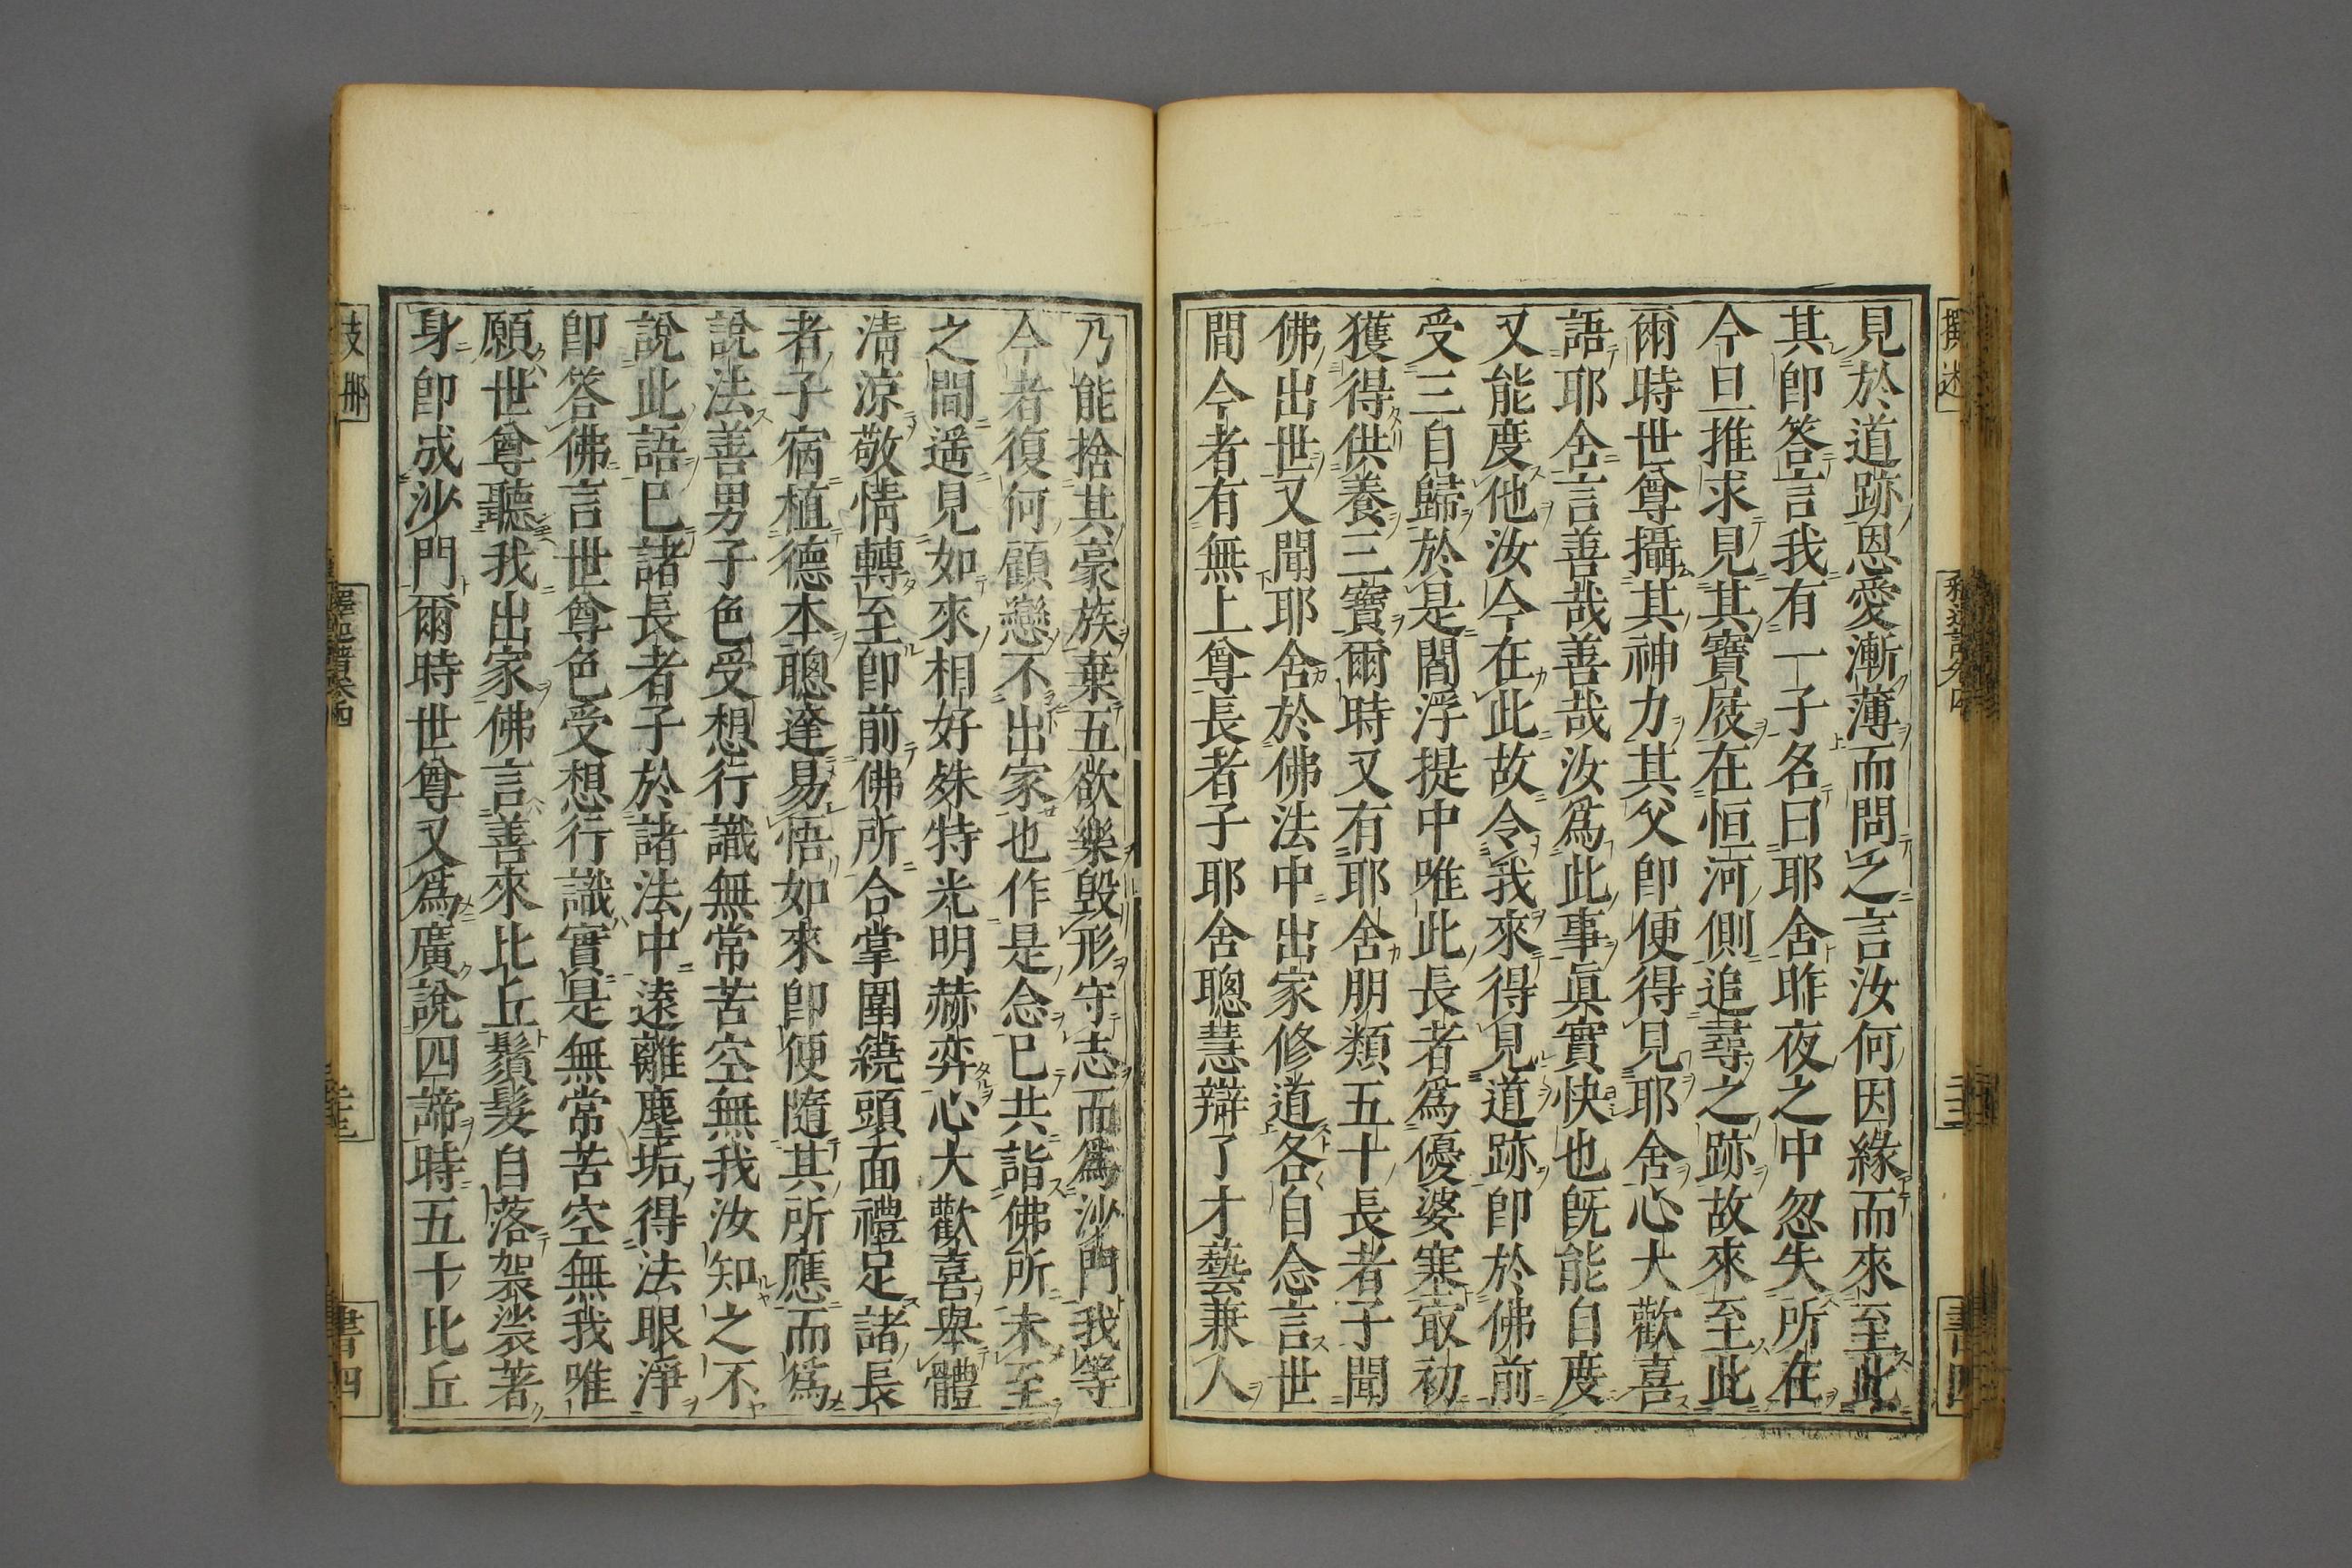 見於道跡恩愛漸薄而問之言汝何因緣而來至此
其卽答言我有一子名曰耶舍昨夜之中忽失所在
今旦推求見其寶屐在恒河側追尋之跡故來至此
爾時世尊攝其神力其父卽便得見耶舍心大歡喜
語耶舍言善哉善哉汝爲此事眞實快也旣能自度
又能度他汝今在此故令我來得見道跡卽於佛前
受三自歸於是閻浮提中唯此長者爲優婆塞㝡初
獲得供養三寶爾時又有耶舍朋類五十長者子聞
佛出世又聞耶舍於佛法中出家修道各自念言世
間今者有無上尊長者子耶舍聰慧辯了才藝兼人
乃能捨其豪族棄五欲樂毀形守志而爲沙門我等
今者復何顧戀不出家也作是念已共詣佛所未至
之間遥見如來相好殊特光明赫弈心大歡喜舉體
清涼敬情轉至卽前佛所合掌圍繞頭面禮足諸長
者子宿植德本聰達易悟如來卽便隨其所應而爲
說法善男子色受想行識無常苦空無我汝知之不
說此語已諸長者子於諸法中遠離塵垢得法眼淨
卽答佛言世尊色受想行識實是無常苦空無我唯
願世尊聽我出家佛言善來比丘鬚髮自落袈裟著
身卽成沙門爾時世尊又爲廣說四諦時五十比丘